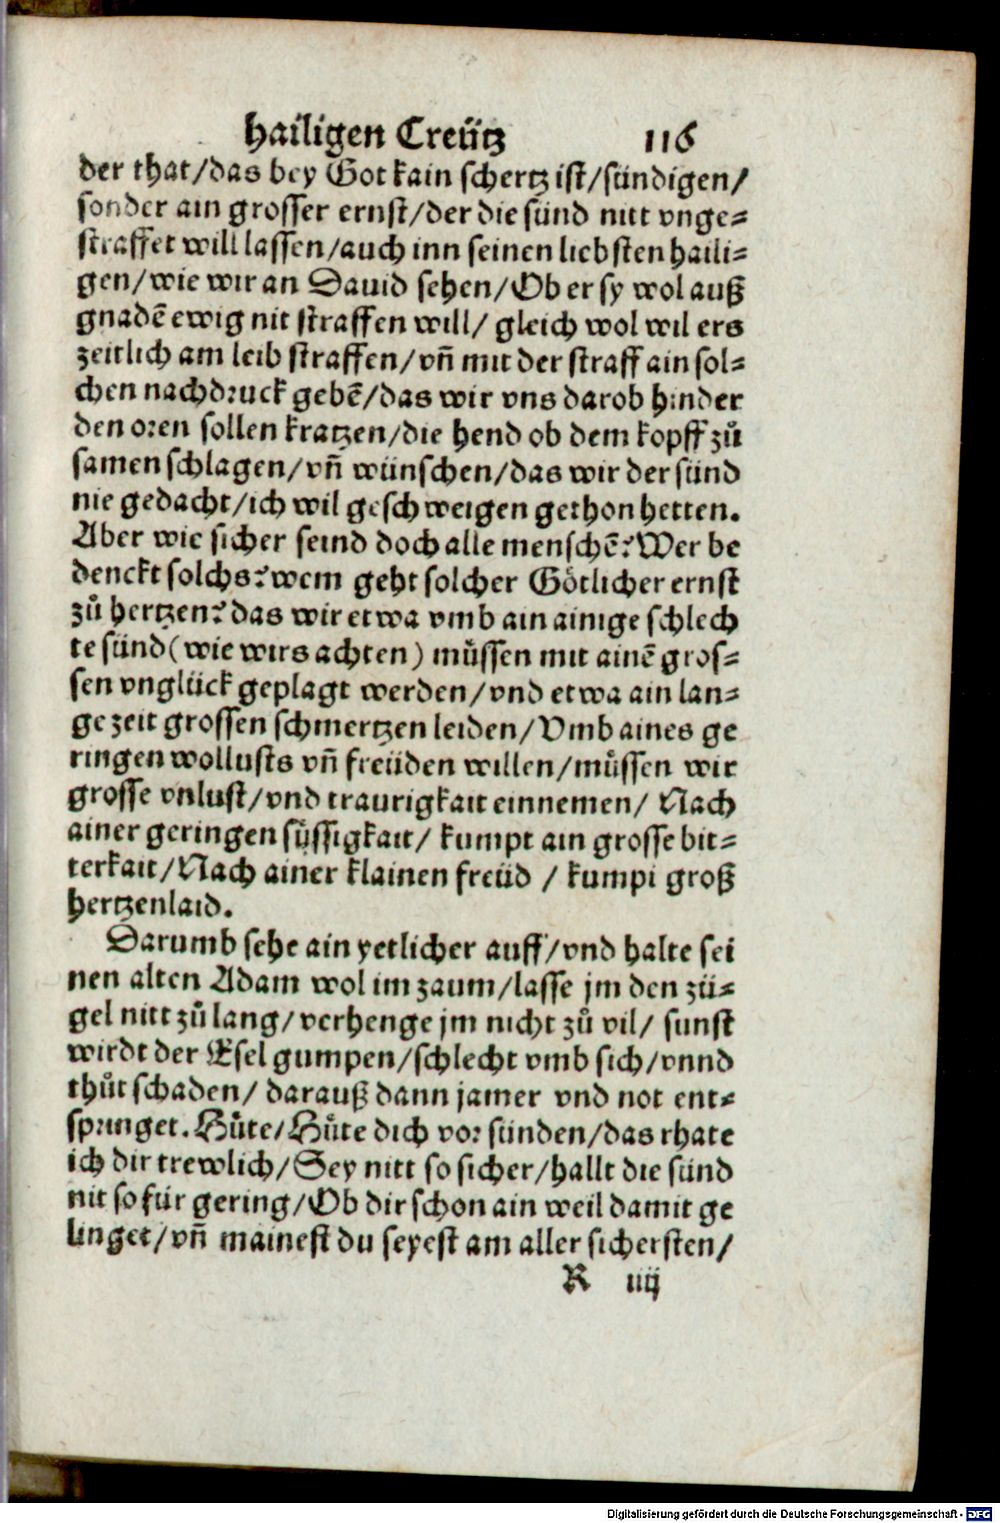 hailigen Creütz 116
der that/das bey Got kain schertz ist/sündigen/
sonder ain grosser ernst/der die sünd nitt vnge⸗
straffet will lassen/auch inn seinen liebsten haili⸗
gen/wie wir an Dauid sehen/Ob er sy wol auß
gnadē ewig nit straffen will/ gleich wol wil ers
zeitlich am leib straffen/vñ mit der straff ain sol⸗
chen nachdruck gebē/das wir vns darob hinder
den oren sollen kratzen/die hend ob dem kopff zů
samen schlagen/vñ wünschen/das wir der sünd
nie gedacht/ich wil geschweigen gethon hetten.
Aber wie sicher seind doch alle menschē? Wer be
denckt solchs? wem geht solcher Götlicher ernst
zů hertzen? das wir etwa vmb ain ainige schlech
te sünd (wie wirs achten) müssen mit ainē gros⸗
sen vnglück geplagt werden/vnd etwa ain lan⸗
ge zeit grossen schmertzen leiden/Vmb aines ge
ringen wollusts vñ freüden willen/müssen wir
grosse vnlust/vnd traurigkait einnemen/ Nach
ainer geringen süssigkait/ kumpt ain grosse bit⸗
terkait/Nach ainer klainen freüd / kumpt groß
hertzenlaid.
Darumb sehe ain yetlicher auff/vnd halte sei
nen alten Adam wol im zaum/lasse jm den zü⸗
gel nitt zů lang/verhenge jm nicht zů vil/ sunst
wirdt der Esel gumpen/schlecht vmb sich/vnnd
thůt schaden/ darauß dann jamer vnd not ent⸗
springet. Hüte/Hüte dich vor sünden/das rhate
ich dir trewlich/Sey nitt so sicher/hallt die sünd
nit so für gering/Ob dir schon ain weil damit ge
linget/vñ mainest du seyest am aller sichersten/
R iiij
Digitalisierung gefördert durch die Deutsche Forschungsgemeinschaft - DFG